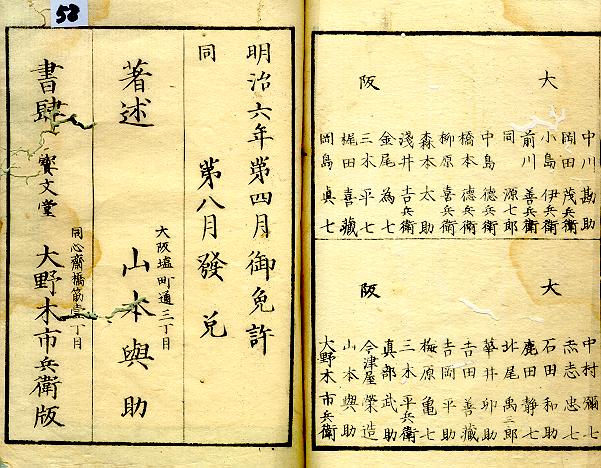 大阪
中川勘助
岡田茂兵衛
小島伊兵衛
前川善兵衛
同源七郎
中島德兵衛
橋本德兵衛
柳原喜兵衛
森本太助
淺井吉兵衛
金尾為七
三木平七
梶田喜藏
岡島真七
大阪
中村彌七
忠志忠七
石田和助
鹿田静七
北尾禹三郎
華井卯助
吉田善藏
吉岡平助
梅原亀七
三木平兵衛
真部武助
今津屋榮造
山本與助
大野木市兵衛
52
明治六年第四月御免許
同第八月發兌
大阪塩町通三丁目
著述山本與助
同心齋橋筋壹丁目
書肆寳文堂大野木市兵衛版